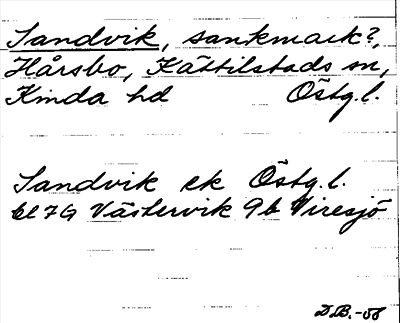 Sandvik, sankmark?,
Hårsbo, Kättilstads sn,
Kinda hd Östg.l.
Sandvik ek Östg.l.
bl 7G Västervik 9b Viresjö
D.B.-58